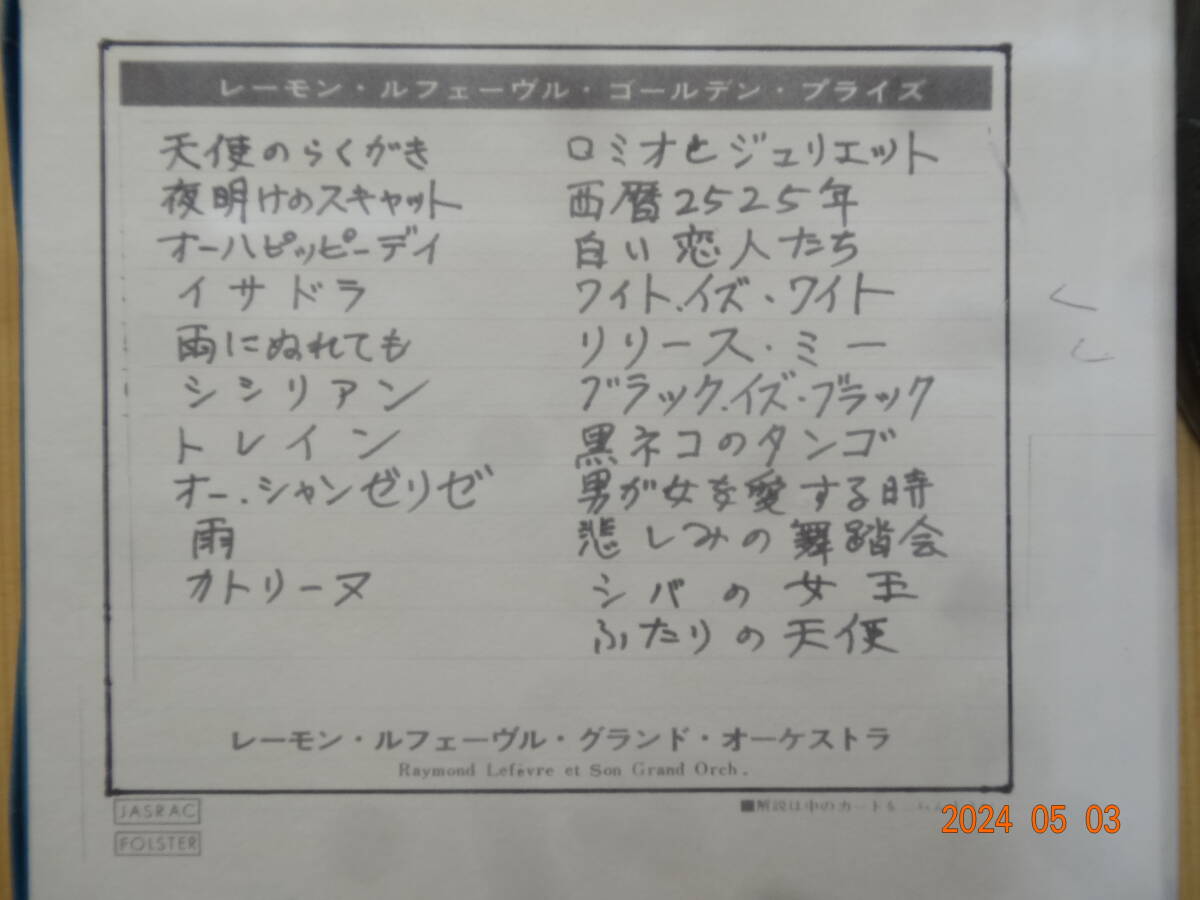 レーモン・ルフェーヴル・ゴールデン・プライズ
天使のらくがき
夜明けのスキャット
オーハピッピーデイ
イサドラ
雨にぬれても
シシリアン
トレイン
オー.シャンゼリゼ
雨
カトリーヌ
ロミオとジュリエット
西暦2525年
白い恋人たち
ワイト.イズ・ワイト
リリース・ミー
ブラック.イズ・ブラック
黒ネコのタンゴ
男が女を愛する時
悲しみの舞踏会
シバの女王
ふたりの天使
レーモン・ルフェーヴル・グランド・オーケストラ
Raymond Lefèvre et Son Grand Orch.
JASRAC
FOLSTER
■解説は中のカードを
2024 05 03